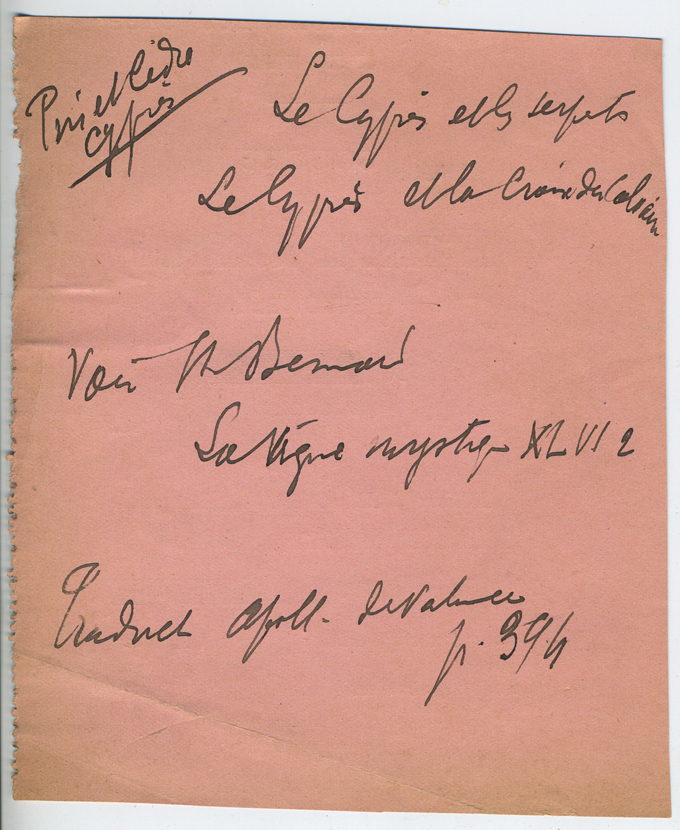 Pin et Cèdre
Cyprès
Le Cyprès et les serpents
Le Cyprès et la Croix du Calvaire
Voir St Bernard
La Vigne mystiq XLVI 2
Traduct Apoll. de Valence
p. 394